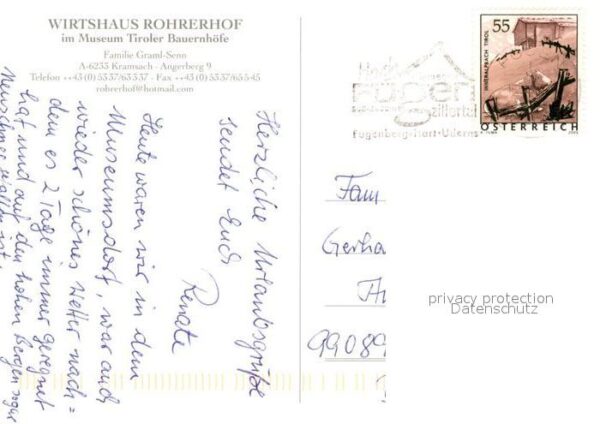 WIRTSHAUS ROHRERHOF
im Museum Tiroler Bauernhöfe
Familie Graml-Senn
A-6233 Kramsach - Angerberg 9
Telefon ++43(0)5337/63537 · Fax ++43(0)5337/65545
rohrerhof@hotmail.com
Herzliche Urlaubsgrüße
sendet Euch
Renate
Heute waren wir in dem
Museumsdorf, war auch
wieder schönes Wetter nach=
dem es 2 Tage immer geregnet
hat und auf den hohen Bergen sogar
Neuschnee gefallen ist.
Fügen
Zillertal
Fügenberg·Hart·Uderns
55
INNERALPBACH TIROL
ÖSTERREICH
Fam
Gerha
99089
privacy protection
Datenschutz